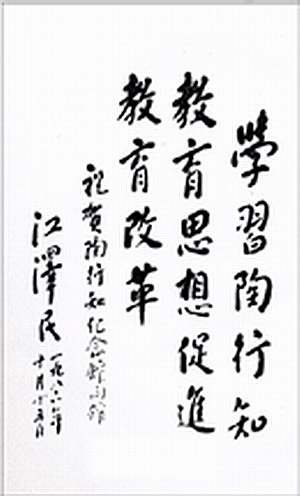 學習陶行知
教育思想促進
教育改革
祝賀陶行知紀念館開館
江澤民
一九八六年
十月十五日